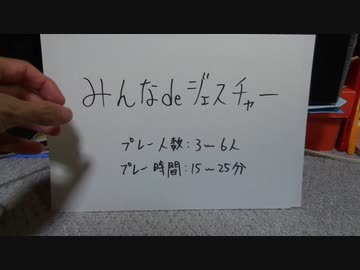 みんなdeジェスチャー
プレー人数：3～6人
プレー時間：15～25分